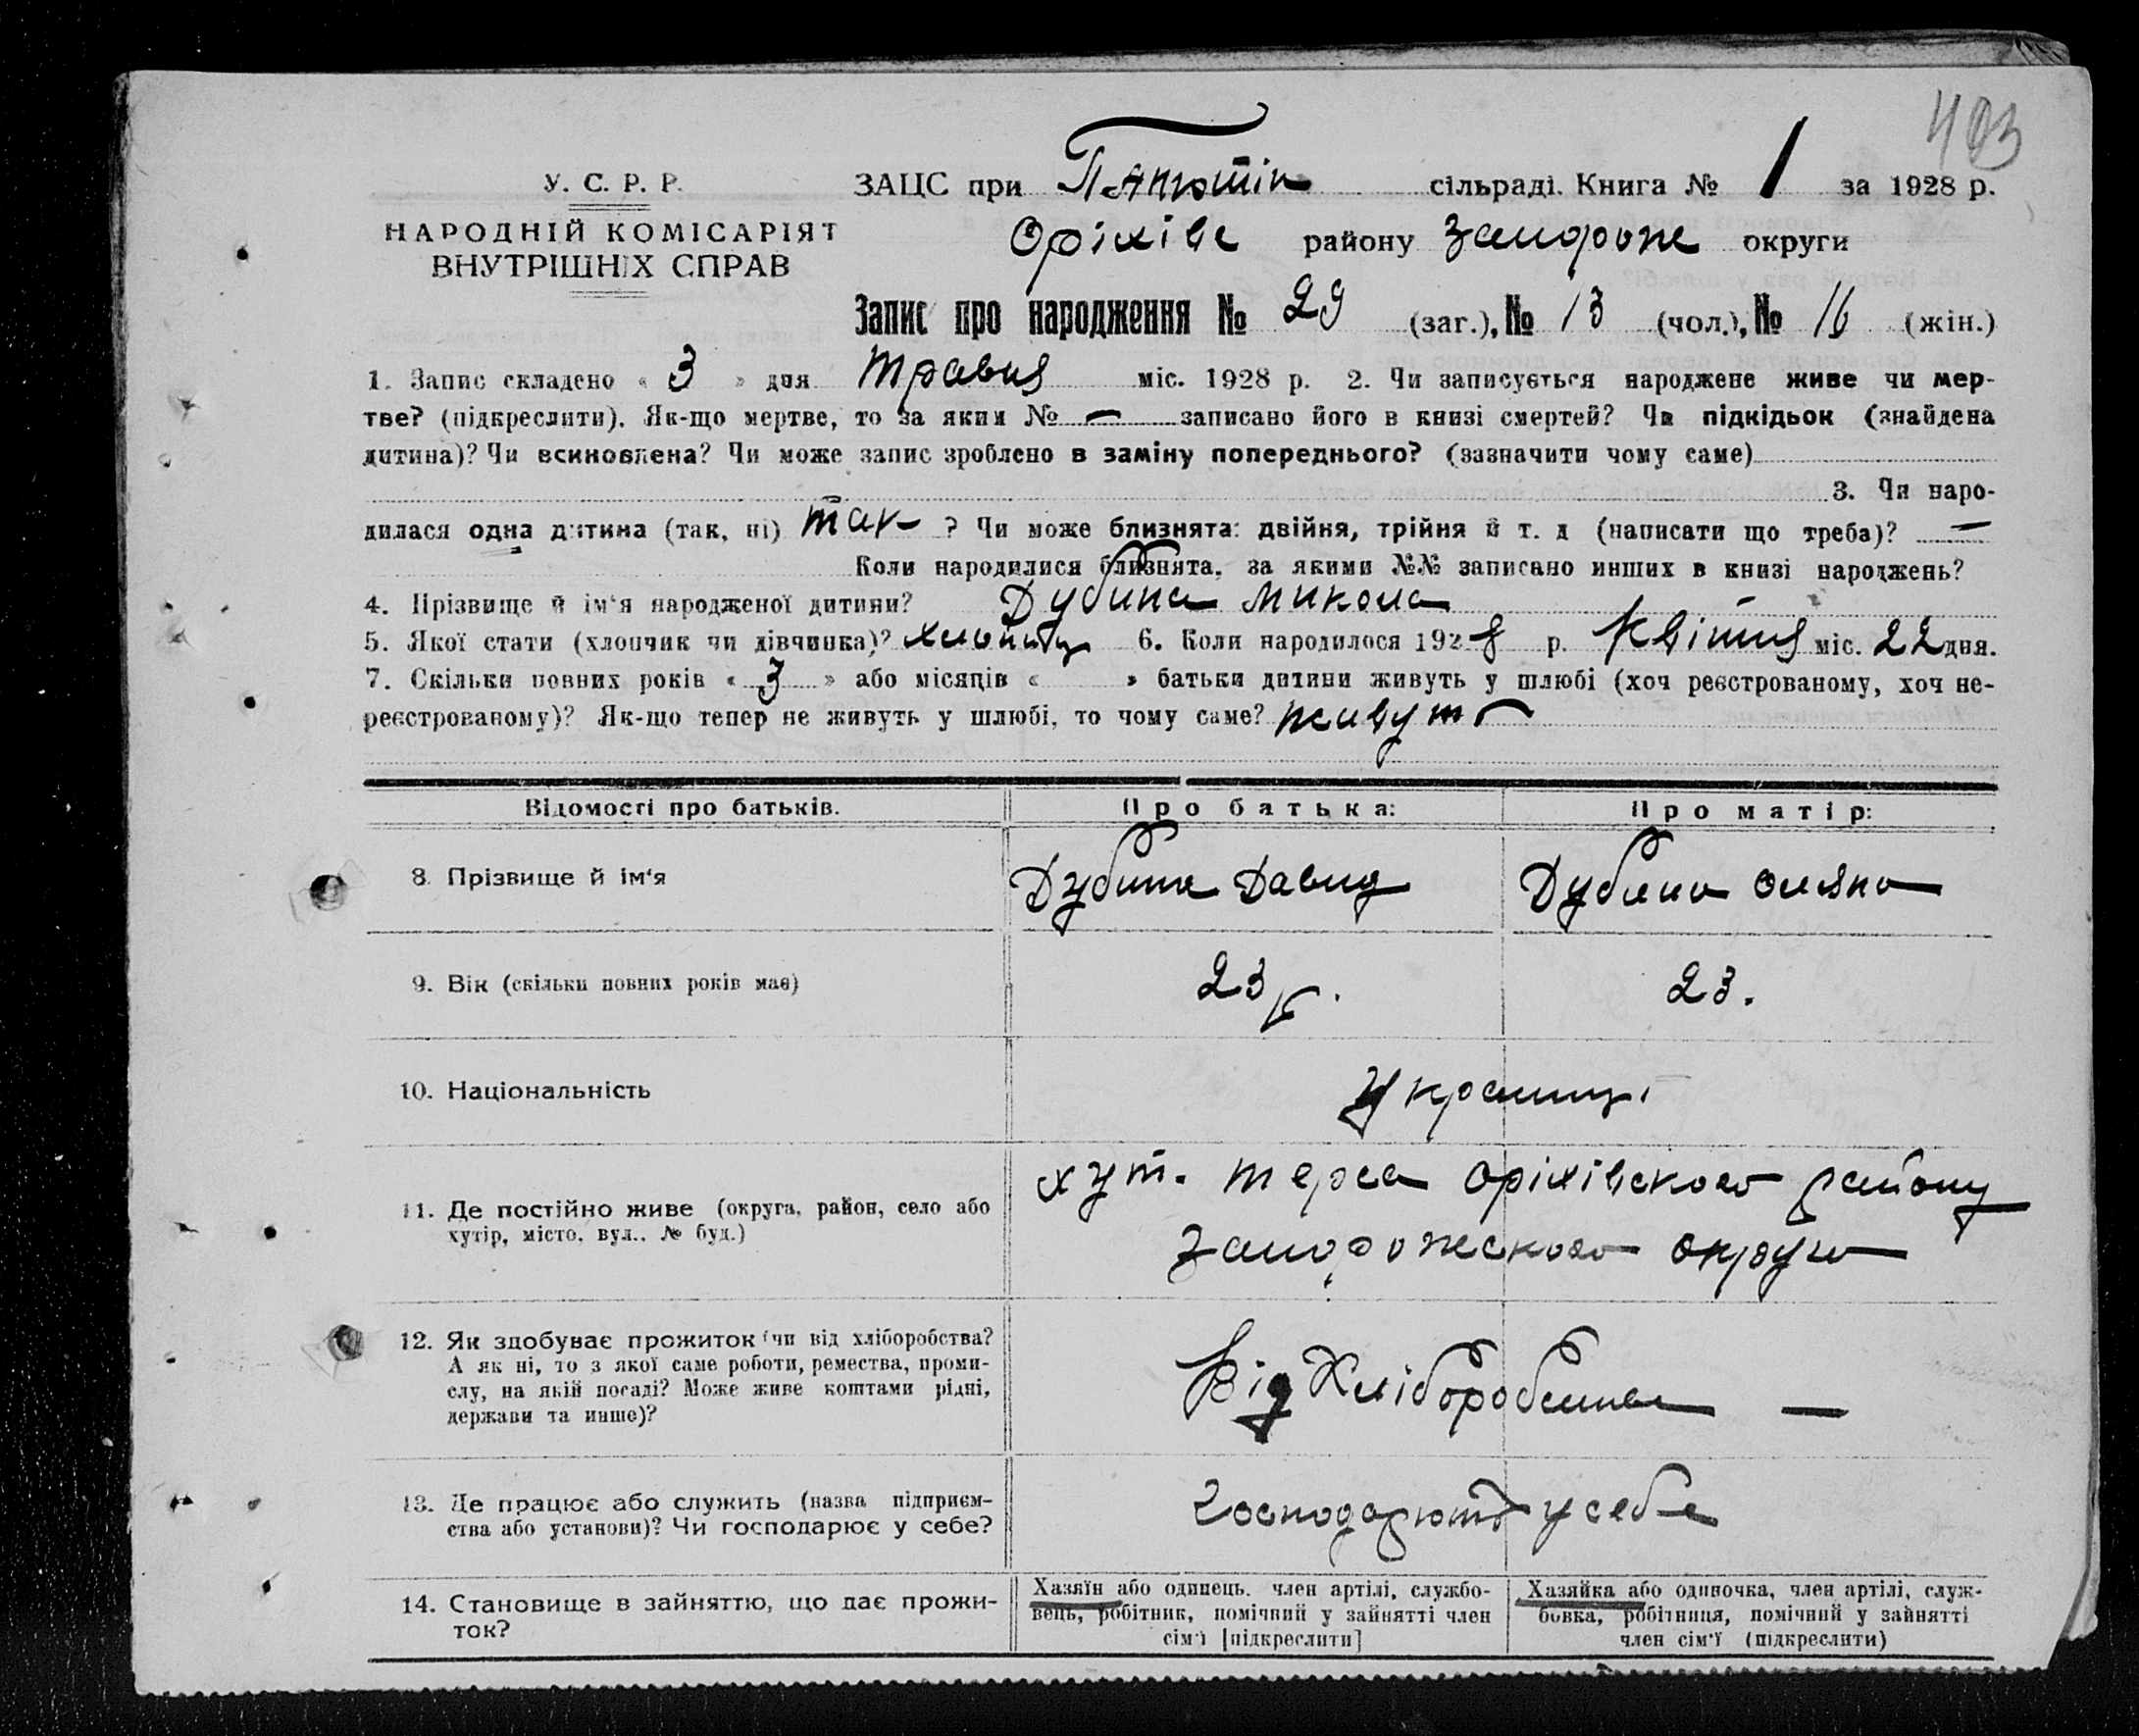 403
У. С. Р. Р.
НАРОДНІЙ КОМІСАРІЯТ
ВНУТРІШНІХ СПРАВ
ЗАЦС при Панютін сільраді. Книга № 1 за 1928 р.
Оріхівс району Запорож округи
Запис про народження № 29 (заг.), № 13 (чол.), № 16 (жін.)
1. Запис складено « 3 » дня травня міс. 1928 р. 2. Чи записується народжене живе чи мер-
тве? (підкреслити). Як-що мертве, то за яким № — записано його в книзі смертей? Чи підкідьок (знайдена
дитина)? Чи всиновлена? Чи може запис зроблено в заміну попереднього? (зазначити чому саме)
3. Чи наро-
дилася одна дитина (так, ні) так ? Чи може близнята: двійня, трійня й т. д (написати що треба)? —
Коли народилися близнята, за якими №№ записано инших в книзі народжень?
4. Прізвище й ім'я народженої дитини? Дубина Микола
5. Якої стати (хлопчик чи дівчинка)? 6. Коли народилося 1928 р. Квітня міс. 22 дня.
7. Скільки повних років « 3 » або місяців « » батьки дитини живуть у шлюбі (хоч реєстрованому, хоч не-
реєстрованому)? Як-що тепер не живуть у шлюбі, то чому саме? живуть
Відомості про батьків. Про батька: Про матір:
8. Прізвище й ім'я Дубина Давид Дубина Оляна
9. Вік (скільки повних років має) 23 р. 23.
10. Національність Українці
11. Де постійно живе (округа, район, село або
хутір, місто, вул., № буд.)
хут. Терса Оріхівського району
Запорожського округи
12. Як здобуває прожиток (чи від хліборобства?
А як ні, то з якої саме роботи, ремества, проми-
слу, на якій посаді? Може живе коштами рідні,
держави та инше)?
Від Хліборобства —
13. Де працює або служить (назва підприєм-
ства або установи)? Чи господарює у себе?
Господарюють у себе
14. Становище в зайняттю, що дає прожи-
ток?
Хазяїн або одинець, член артілі, службо-
вець, робітник, помічний у зайнятті член
сім'ї [підкреслити]
Хазяйка або одиночка, член артілі, служ-
бовка, робітниця, помічний у зайнятті
член сім'ї (підкреслити)